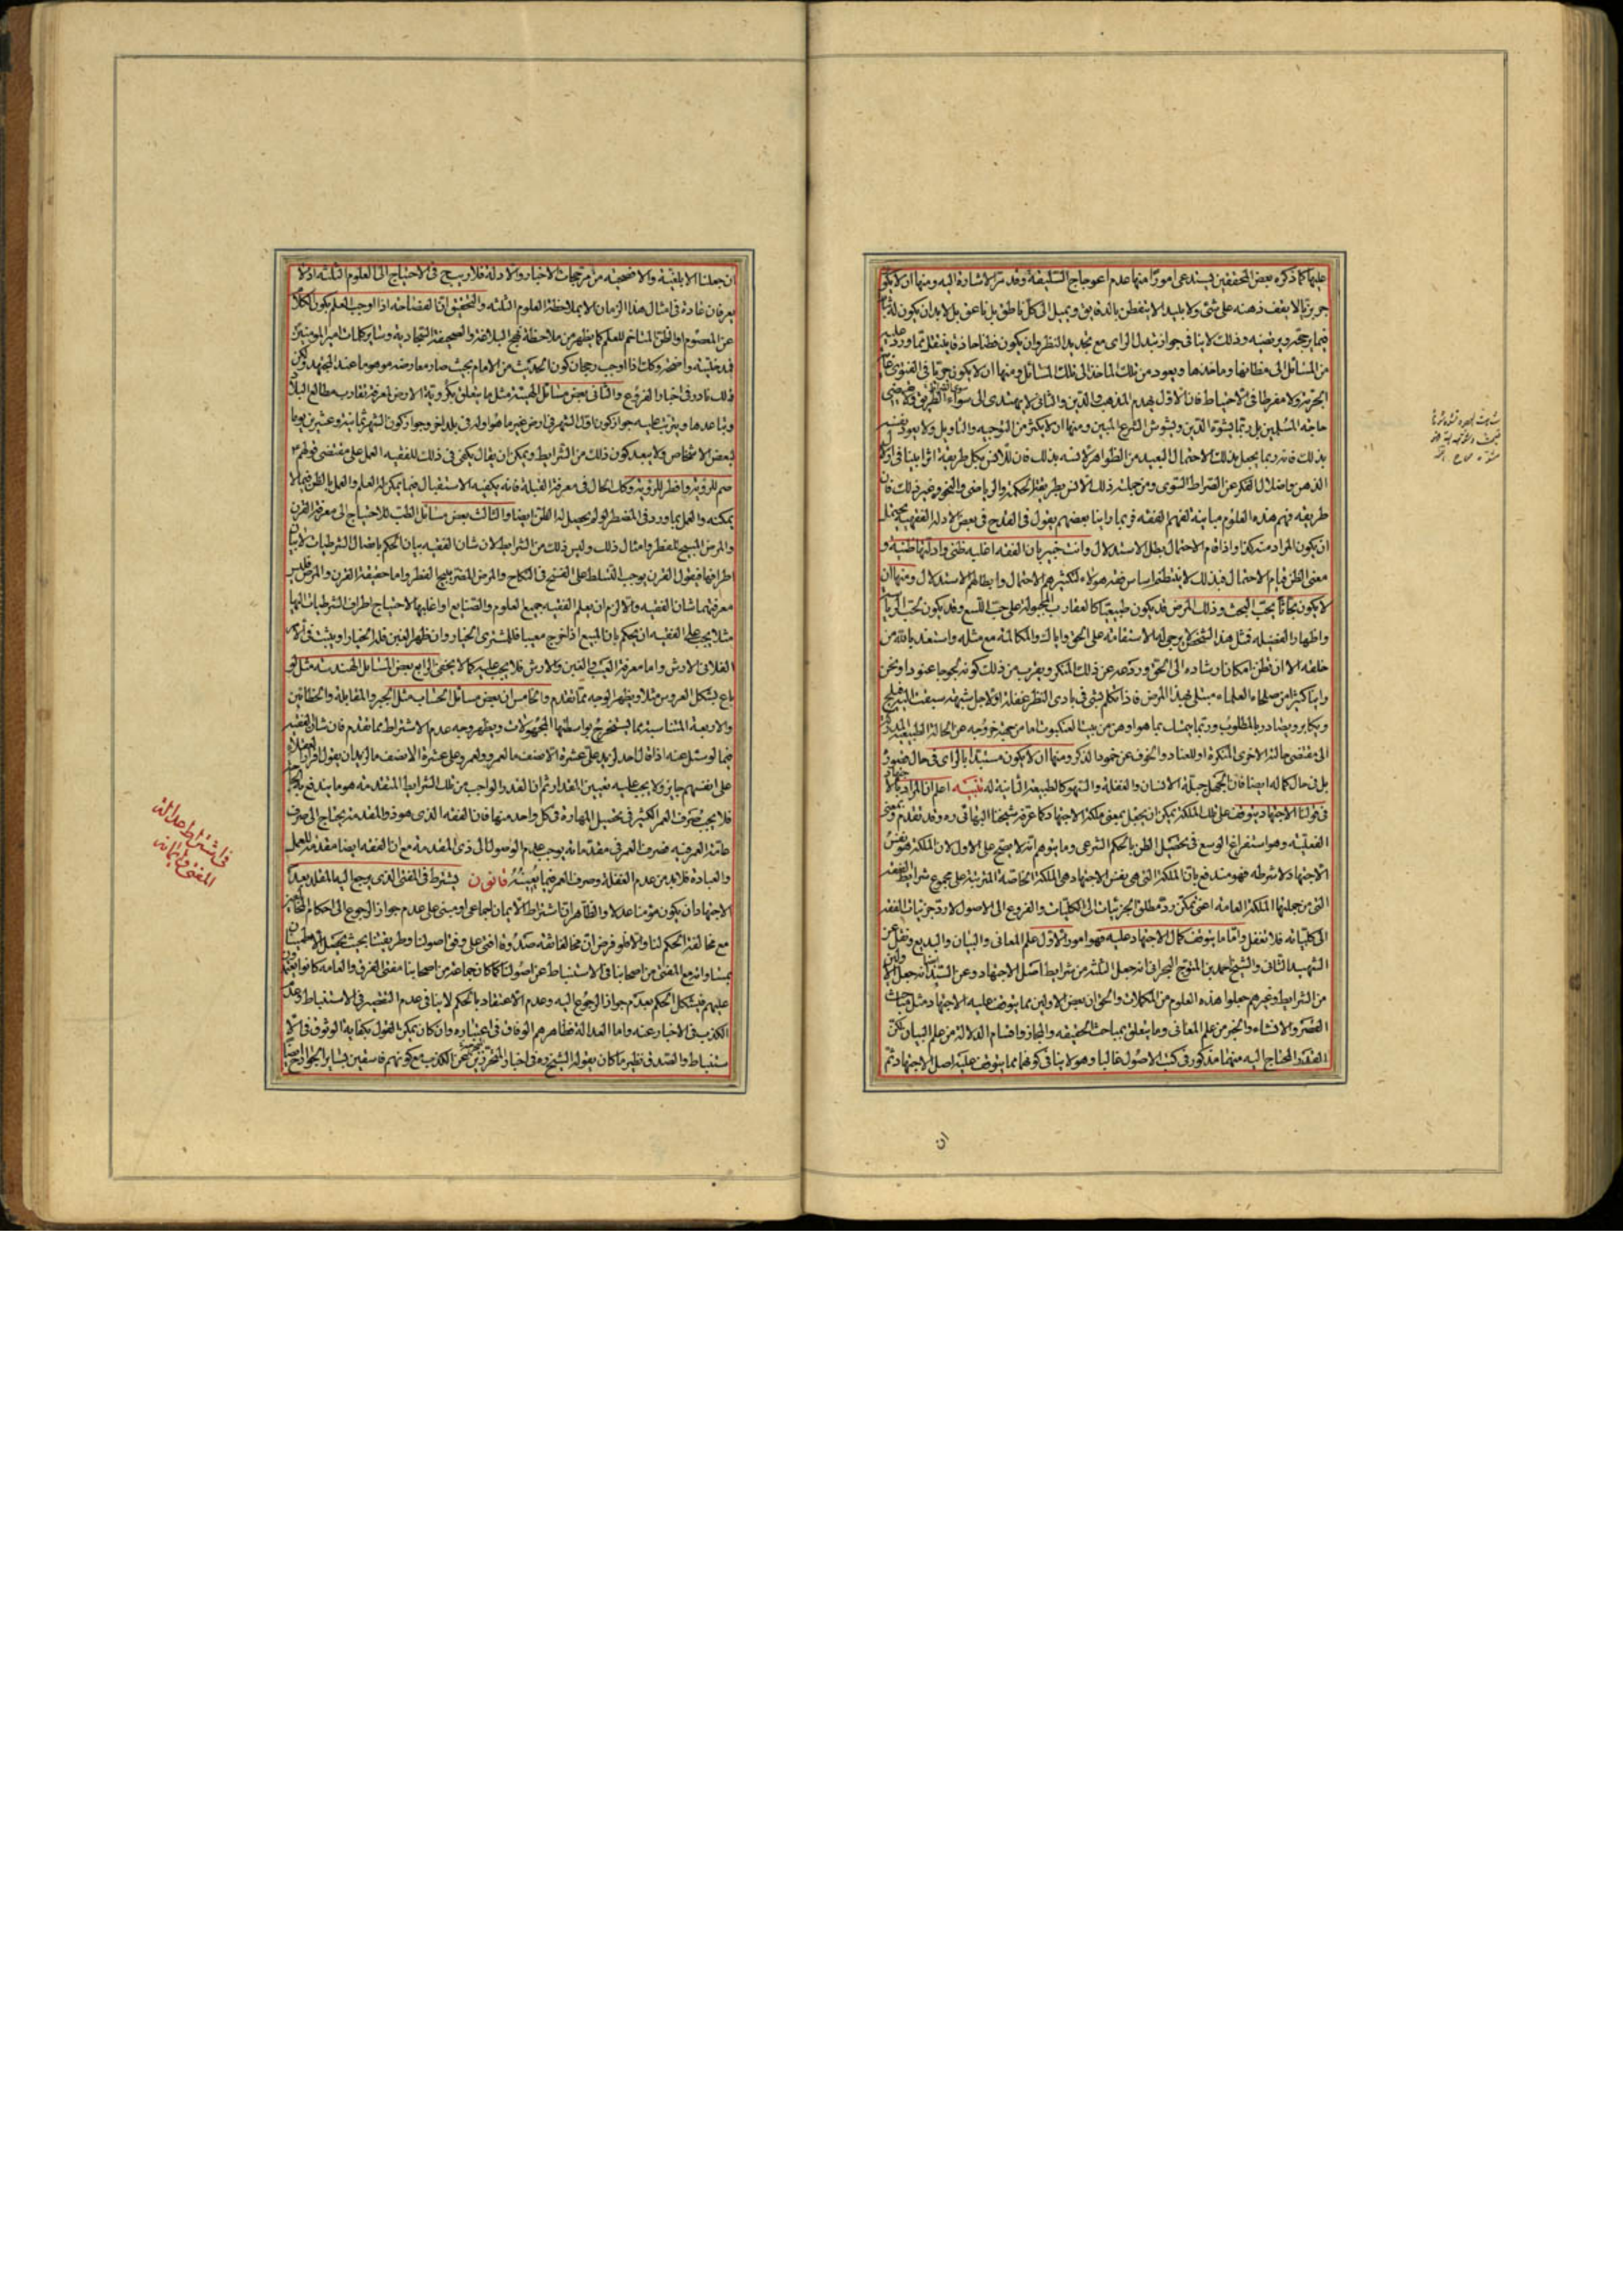 عليها كما ذكره بعض المحققين يستدعى امورا منها عدم اعوجاج السليقة وقد مر الاشارة اليه ومنها ان لا يكون
جربزيا لا يقف ذهنه على شئ ولا بليدا لا يتفطن بالدقايق ويميل الى كل ناطق بل ناعق بل لا بد ان يكون له ثبات
فيما يرجحه ويرتضيه وذلك لا ينافى جواز تبدل الراى مع تجديد النظر وان يكون فطنا حاذقا ينتقل
من المسائل الى مظانها وماخذها ويعود من تلك الماخذ الى تلك المسائل ومنها ان لا يكون جريا فى الفتوى غاية
الجرئة ولا مفرطا فى الاحتياط فان الاول يهدم المذهب والدين والثانى لا يهتدى الى سواء الطريق ولا يقضى
حاجة المسلمين بل ربما يشوه الدين ويشوش الشرع المبين ومنها ان لا يكثر من التوجيه والتاويل ولا يعود نفسه
بذلك فانه ربما يجعل بذلك الاحتمال البعيد من الظواهر لانسه بذلك فان للانس بكل طريقة اثرا بينا فى
الذهن واضلالا للفكر عن الصراط السوى ومن جملة ذلك الانس بطريقة الحكمة والرياضى والنحو وغير ذلك فان
طريقة فهم هذه العلوم مباينة لفهم الفقه فربما راينا بعضهم يقول فى القدح فى بعض الادلة الفقهية يحتمل
ان يكون المراد منه كذا واذا قام الاحتمال بطل الاستدلال وانت خبير بان الفقه اغلبه ظنى وادلتها ظنية و
معنى الظن قيام الاحتمال فبذلك لا ينقطع اساس فقه هؤلاء لتكثيرهم الاحتمال وابطالهم الاستدلال ومنها ان
لا يكون بحاثا يحب البحث وذلك المرض قد يكون طبيعيا كالعقارب المجبولة على حب اللسع وقد يكون لحب الرياسة
واظهار الفضيلة فمثل هذا الشخص لا يرجى له الاستقامة على الحق واياك والمكالمة مع مثله واستعذ بالله من
خلقه الا ان تظن امكان ارشاده الى الحق وردعه عن ذلك المنكر ويقرب من ذلك كونه لجوجا عنودا ونحن
راينا كثيرا من صلحاء العلماء مبتلى بهذا المرض فاذا تكلم بشئ فى بادى النظر غفلة او لاجل شبهة سبقت اليه فيلج
ويكابر ويصادر بالمطلوب وربما يتمسك بما هو اوهن من بيت العنكبوت
الى مقتضى حالته الاخرى المنكرة او للعناد والخوف عن خمود الذكر ومنها ان لا يكون مستبدا بالراى فى حال قصوره
بل فى حال كماله ايضا فان الجهل جبلة الانسان والغفلة والسهو كالطبيعة الثانية له تنبيه اعلم ان المراد بالاجتهاد
فى قولنا الاجتهاد يتوقف على تلك الملكة يمكن ان يجعل بمعنى ملكة الاجتهاد كما عرفه شيخنا البهائى ره وقد تقدم وبمعنى
الفعلية وهو استفراغ الوسع فى تحصيل الظن بالحكم الشرعى وما يتوهم انه لا يصح على الاول لان الملكة هو نفس
الاجتهاد لا شرطه فهو مندفع بان الملكة التى هى نفس الاجتهاد هى الملكة الخاصة المترتبة على مجموع شرايط الفقه
التى من جملتها الملكة العامة اعنى تمكن رد مطلق الجزئيات الى الكليات والفروع الى الاصول لا رد جزئيات الفقه
الى كلياته فلا تغفل واما ما يتوقف كمال الاجتهاد عليه فهو امور الاول علم المعانى والبيان والبديع ونقل عن
الشهيد الثانى والشيخ احمد بن المتوج البحرانى انه جعل الثلثة من شرايط اصل الاجتهاد وعن السيد انه جعل
من الشرايط وغيرهم جعلوا هذه العلوم من المكملات والحق ان بعض الاولين مما يتوقف عليه الاجتهاد مثل مباحث
القصر والانشاء والخبر من علم المعانى وما يتعلق بمباحث الحقيقة والمجاز واقسام الدلالة من علم البيان لكن
القدر المحتاج اليه منهما مذكور فى كتب الاصول غالبا وهو لا ينافى كونهما مما يتوقف عليه اصل الاجتهاد ثم
ان
ان جعلنا الابلغية والافصحية من مرجحات الاخبار والادلة فلا ريب فى الاحتياج الى العلوم الثلثة اذ لا
يعرفان عادة فى امثال هذا الزمان الا بملاحظة العلوم الثلثة والتحقيق ان الفصاحة اذا اوجب العلم بكون الكلام
عن المعصوم او الظن المتاخم للعلم كما يظهر من ملاحظة نهج البلاغة والصحيفة السجادية وساير كلمات امير المؤمنين
فمدخليته واضحة وكذا اذا اوجب رجحان كون الحديث من الامام بحيث صار معارضه موهوما عند المجتهد ولكن
ذلك نادر فى اخبار الفروع والثانى بعض مسائل الهيئة مثل ما يتعلق بكروية الارض لمعرفة تقارب مطالع البلاد
وتباعدها ويترتب عليه جواز كون اول الشهر فى ارض غير ما هو اوله فى بلد اخر وجواز كون الشهر ثمانية وعشرين يوما
لبعض الاشخاص ولا يبعد كون ذلك من الشرايط ويمكن ان يقال يكفى فى ذلك للفقيه العمل على مقتضى قولهم
صم للرؤية وافطر للرؤية وكذا الحال فى معرفة القبلة فانه يكفيه الاستقبال فيما يمكن له العلم والعمل بالظن فيما لا
يمكنه والعمل بما ورد فى المضطر لو لم يحصل له الظن ايضا والثالث بعض مسائل الطب للاحتياج الى معرفة القرن
والمرض المبيح للفطر وامثال ذلك وليس ذلك من الشرايط لان شان الفقيه بيان الحكم باتصال الشرطيات لا بيان
اطرافها فيقول القرن يوجب التسلط على الفسخ فى النكاح والمرض المضر يبيح الفطر واما حقيقة القرن والمرض فليس
معرفتهما شان الفقيه والا لزم ان يعلم الفقيه جميع العلوم والصنايع او اغلبها لاحتياج اطراف الشرطيات اليها
مثلا يجب على الفقيه ان يحكم بان المبيع اذا خرج معيبا فللمشترى الخيار وان ظهر الغبن فله الخيار او يثبت فى الامر
الفلانى الارش واما معرفة العيب والغبن والارش فلا يجب عليه كما لا يخفى الرابع بعض المسائل الهندسية مثل لو
باع بشكل العروس مثلا ويظهر الوجه مما تقدم والخامس ان بعض مسائل الحساب مثل الجبر والمقابلة والخطائين
والاربعة المتناسبة مما يستخرج بواسطتها المجهولات ويظهر وجه عدم الاشتراط مما تقدم فان شان الفقيه
فيما لو سئل عنه اذا قال احد لزيد على عشرة الا نصف ما لعمرو ولعمرو على عشرة الا نصف ما لزيد ان يقول اقرار العقلاء
على انفسهم جايز ولا يجب عليه تعيين المقدار ثم ان القدر الواجب من تلك الشرايط المتقدمة هو ما يندفع به الحاجة
فلا يجب صرف العمر الكثير فى تحصيل المهارة فى كل واحد منها فان الفقه الذى هو ذو المقدمة يحتاج الى صرف
عامة العمر فيه فصرف العمر فى مقدماته يوجب عدم الوصول الى ذى المقدمة مع ان الفقه ايضا مقدمة للعمل
والعبادة فلا بد من عدم الغفلة وصرف العمر فيما يعنيه قانون يشترط فى المفتى الذى يرجع اليه المقلد بعد
الاجتهاد ان يكون مؤمنا عدلا والظاهر ان اشتراط الايمان اجماعى او مبنى على عدم جواز الرجوع الى احكام المخالفين
مع مخالفة الحكم لنا والا فلو فرض ان مخالفا ثقة صدوقا افتى على وفق اصولنا وطريقتنا بحيث يحصل الاطمينان
بمساواته مع المفتى من اصحابنا فى الاستنباط عن اصولنا كما كان جماعة من اصحابنا مفتى الفرق والعامة كانوا يعتمدون
عليهم فيشكل الحكم بعدم جواز الرجوع اليه وعدم الاعتقاد بالحكم لا ينافى عدم التقصير فى الاستنباط وعدم
الكذب فى الاخبار عنه واما العدالة فظاهرهم الوفاق فى اعتباره وان كان يمكن القول بكفاية الوثوق فى الا
ستنباط والصدق نظير ما كان يقوله الشيخ ره فى اخبار المتحرزين عن الكذب مع كونهم فاسقين بساير الجوارح
فى اشتراط عدالة
المفتى وايمانه